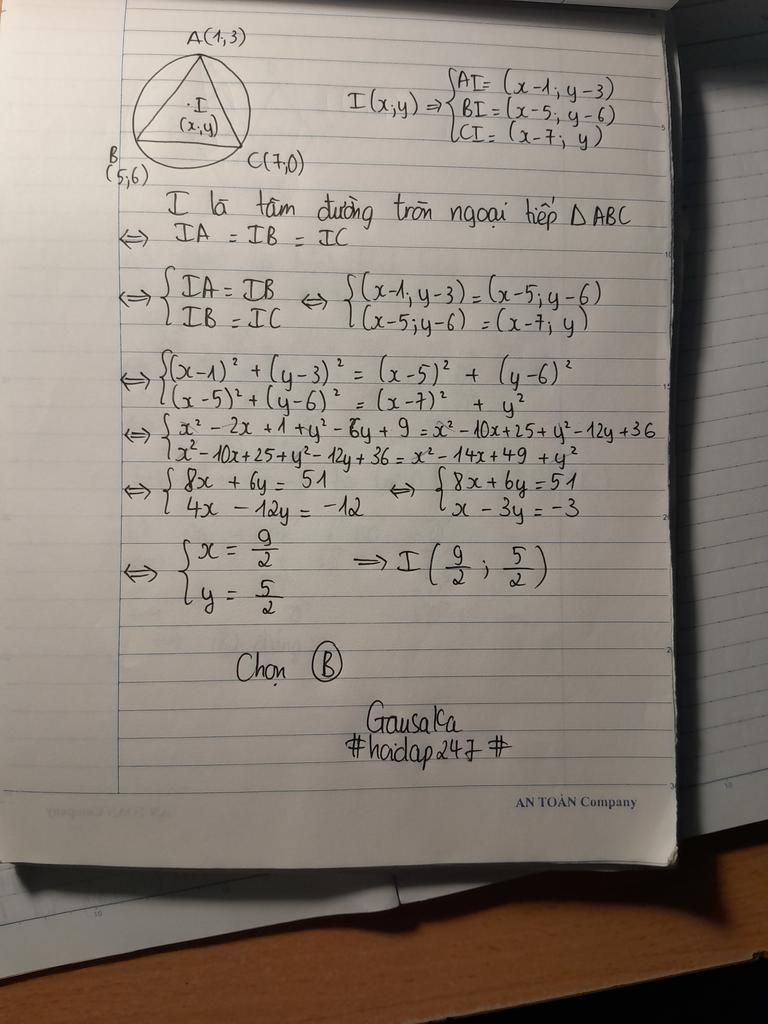 A(1;3)
I
(x;y)
B
(5;6)
C(7;0)
I(x;y) ⇒ { AI = (x-1; y-3)
BI = (x-5; y-6)
CI = (x-7; y)
I là tâm đường tròn ngoại tiếp Δ ABC
⇔ IA = IB = IC
⇔ { IA = IB ⇔ { (x-1; y-3) = (x-5; y-6)
IB = IC (x-5; y-6) = (x-7; y)
⇔ { (x-1)² + (y-3)² = (x-5)² + (y-6)²
(x-5)² + (y-6)² = (x-7)² + y²
⇔ { x² - 2x + 1 + y² - 6y + 9 = x² - 10x + 25 + y² - 12y + 36
x² - 10x + 25 + y² - 12y + 36 = x² - 14x + 49 + y²
⇔ { 8x + 6y = 51 ⇔ { 8x + 6y = 51
4x - 12y = -12 x - 3y = -3
⇔ { x = 9/2 ⇒ I (9/2 ; 5/2)
y = 5/2
Chọn B
GausaKa
#hoidap247#
AN TOÀN Company